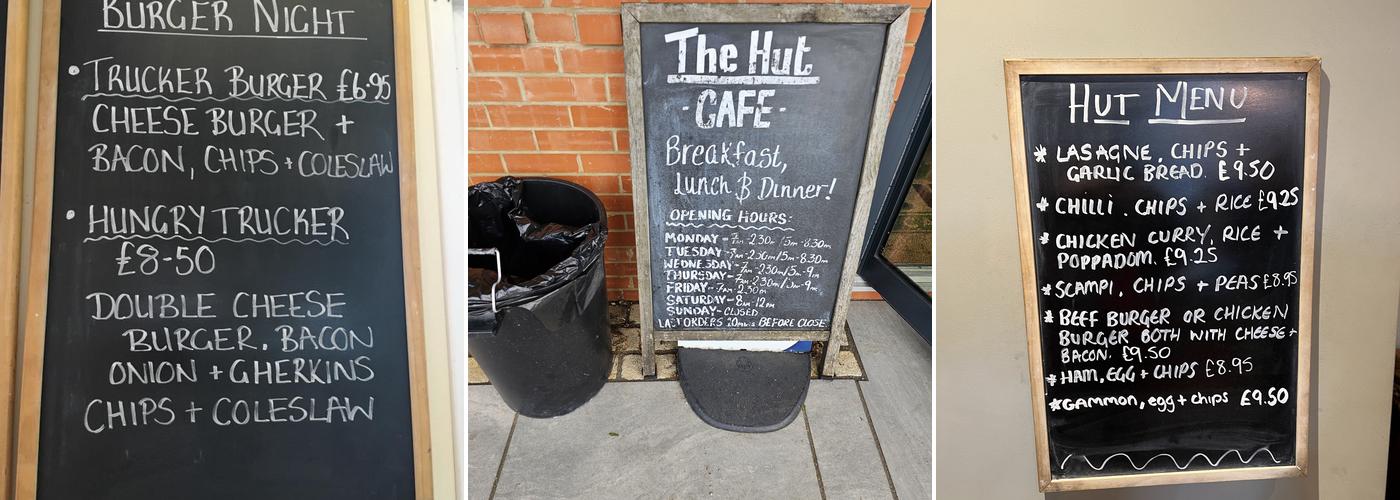 BURGER NIGHT
• TRUCKER BURGER £6-95
CHEESE BURGER +
BACON, CHIPS + COLESLAW
• HUNGRY TRUCKER
£8-50
DOUBLE CHEESE
BURGER. BACON
ONION + GHERKINS
CHIPS + COLESLAW
The Hut
-CAFE-
Breakfast,
Lunch & Dinner!
OPENING HOURS:
MONDAY - 7am-2.30pm/5pm-8.30pm
TUESDAY - 7am-2.30pm/5pm-8.30pm
WEDNESDAY - 7am-2.30pm/5pm-9pm
THURSDAY - 7am-2.30pm/5pm-9pm
FRIDAY - 7am-2.30pm
SATURDAY - 8am-12pm
SUNDAY - CLOSED
LAST ORDERS BEFORE CLOSE
HUT MENU
* LASAGNE. CHIPS +
GARLIC BREAD. £9.50
* CHILLI . CHIPS + RICE £9.25
* CHICKEN CURRY, RICE +
POPPADOM. £9.25
* SCAMPI, CHIPS + PEAS £8.95
* BEEF BURGER OR CHICKEN
BURGER BOTH WITH CHEESE +
BACON. £9.50
* HAM, EGG + CHIPS £8.95
* GAMMON, egg + chips £9.50